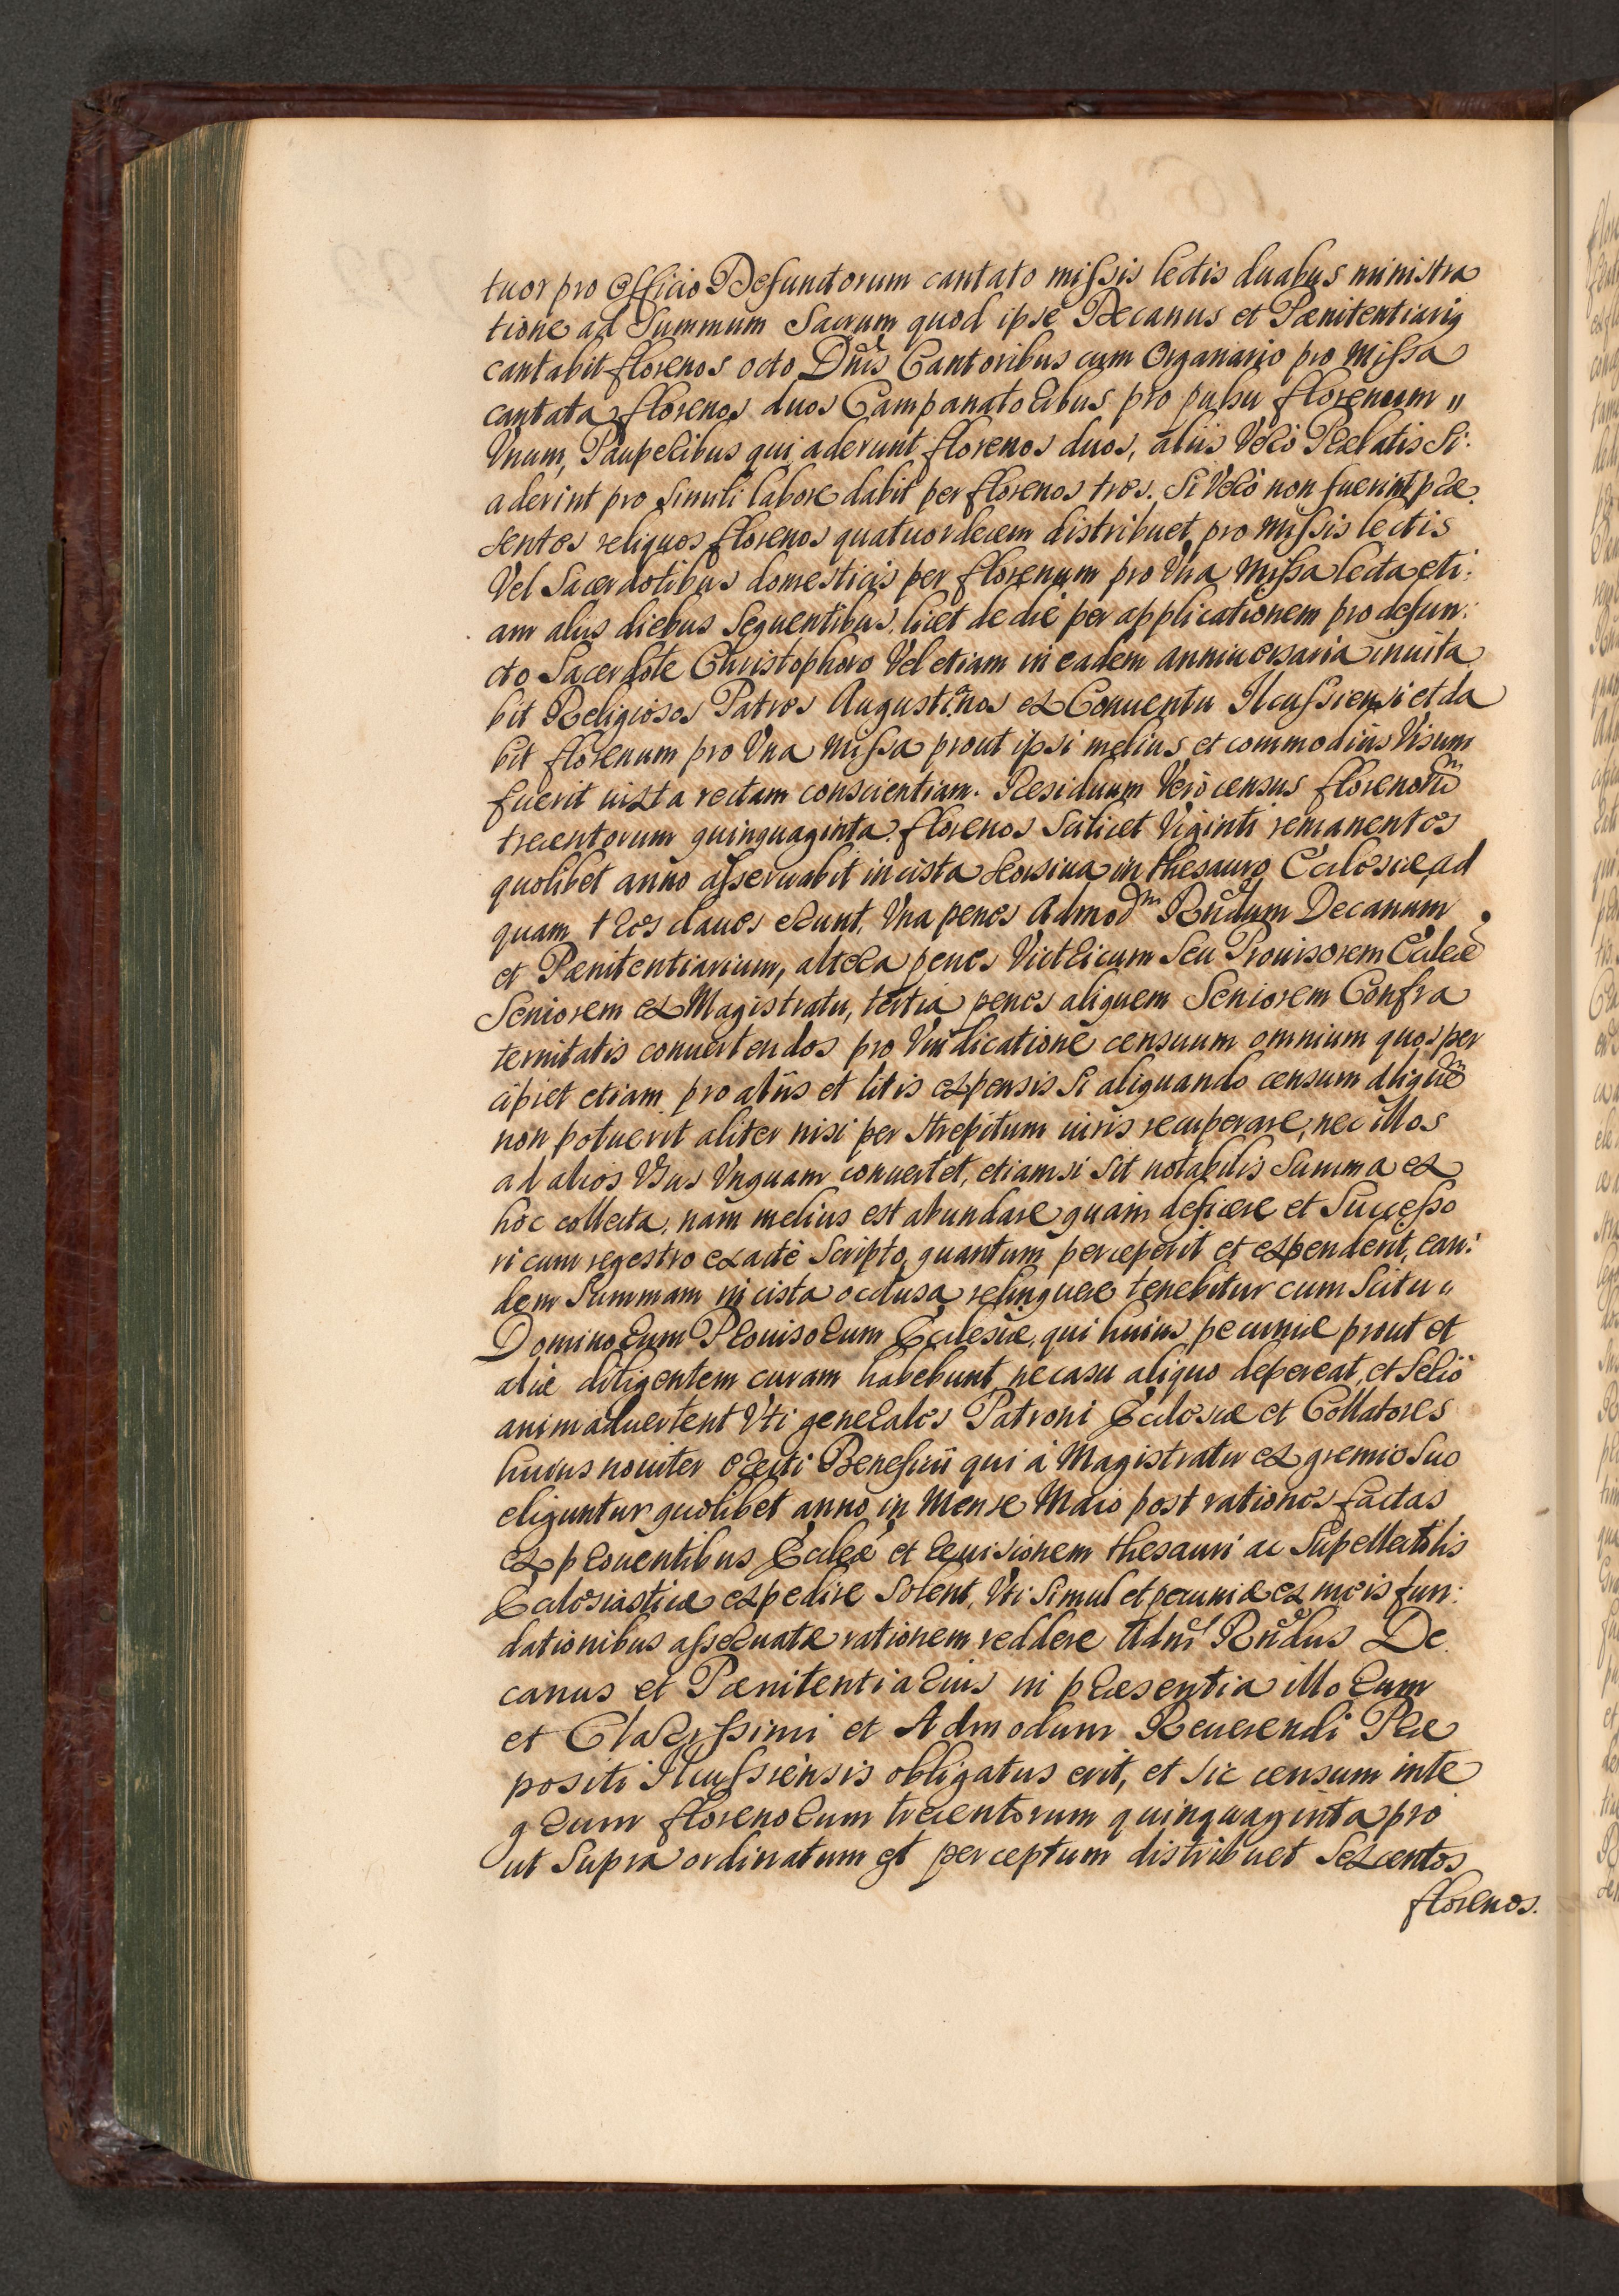 tuor pro Officio Defunctorum cantato missis lectis duabus ministra
tione ad Summum Sacrum quod ipse Decanus et Pænitentiariꝰ
cantabit florenos octo Dnis Cantoribus cum Organario pro Missa
cantata florenos duos Campanatoribus pro pulsu florenum „
Vnum, Pauperibus qui aderunt florenos duos, aliis Verò Prælatis Si:
aderint pro simili labore dabit per florenos tres. Si Verò non fuerint præ
sentes reliquos florenos quatuordecem distribuet pro missis lectis
Vel Sacerdotibus domesticis per florenum pro Vna Missa lecta eti:
am aliis diebus Sequentibus, licet de die per applicationem pro defun:
cto Sacerdote Christophoro Vel etiam in eadem anniuersaria inuita
bit Religiosos Patres Augustinos ex Conuentu Ilcussiensi et da
bit florenum pro Vna Missa prout ipsi melius et commodius Visum
fuerit iuxta rectam conscientiam. Residuum Verò census florenorũ
trecentorum quinquaginta florenos Scilicet Viginti remanentes
quolibet anno asseruabit in cista seorsiua in thesauro Ecclesiæ, ad
quam tres claues erunt, Vna penes Admodm Rndum Decanum
et Pænitentiarium, altera penes Vitricum Seu Prouisorem Eccleæ
Seniorem ex Magistratu, tertia penes aliquem Seniorem Confra
ternitatis conuertendos pro Vindicatione censuum omnium quos per
cipiet etiam pro aliis et litis expensis si aliquando censum aliquẽ
non potuerit aliter nisi per strepitum iuris recuperare, nec illos
ad alios Vsus Vnquam conuertet, etiamsi sit notabilis Summa ex
hoc collecta, nam melius est abundare quam deficere et Successo
ri cum regestro exactè Scripto, quantum perceperit et expenderit, ean:
dem Summam in cista occlusa relinquere tenebitur cum Scitu „
Dominorum Prouisorum Ecclesiæ, qui huius pecuniæ prout et
aliæ diligentem curam habebunt ne casu aliquo depereat, et seriò
animaduertent Vti generales Patroni Ecclesiæ et Collatores
huius nouiter erecti Beneficii qui à Magistratu ex gremio suo
eliguntur quolibet anno in Mense Maio post rationes factas
ex prouentibus Eccleæ et reuisionem thesauri ac Supellectilis
Ecclesiasticæ expedire solent, Vti simul et pecuniæ ex meis fun:
dationibus asseruatæ rationem reddere Adm Rndus De
canus et Pænitentiarius in præsentia illorum
et Clarissimi et Admodum Reuerendi Præ
positi Ilcussiensis obligatus erit, et sic censum inte
grum florenorum trecentorum quinquaginta pro
ut Supra ordinatum et perceptum distribuet Sexcentos
florenos.